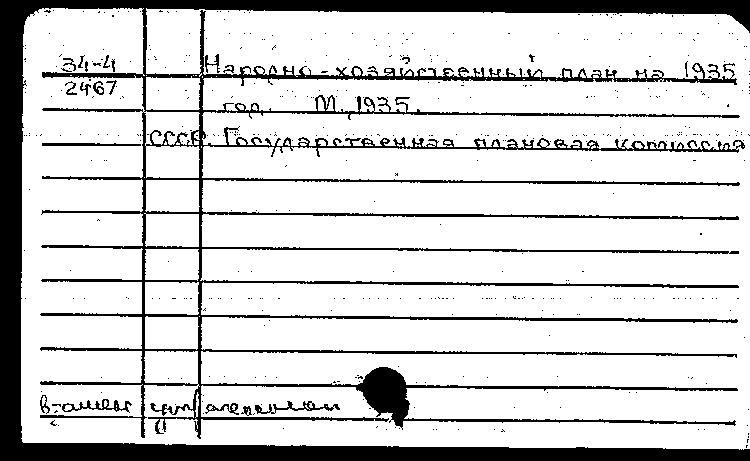 34-4 Народно-хозяйственный план на 1935
2467
год. М., 1935.
СССР. Государственная плановая комиссия